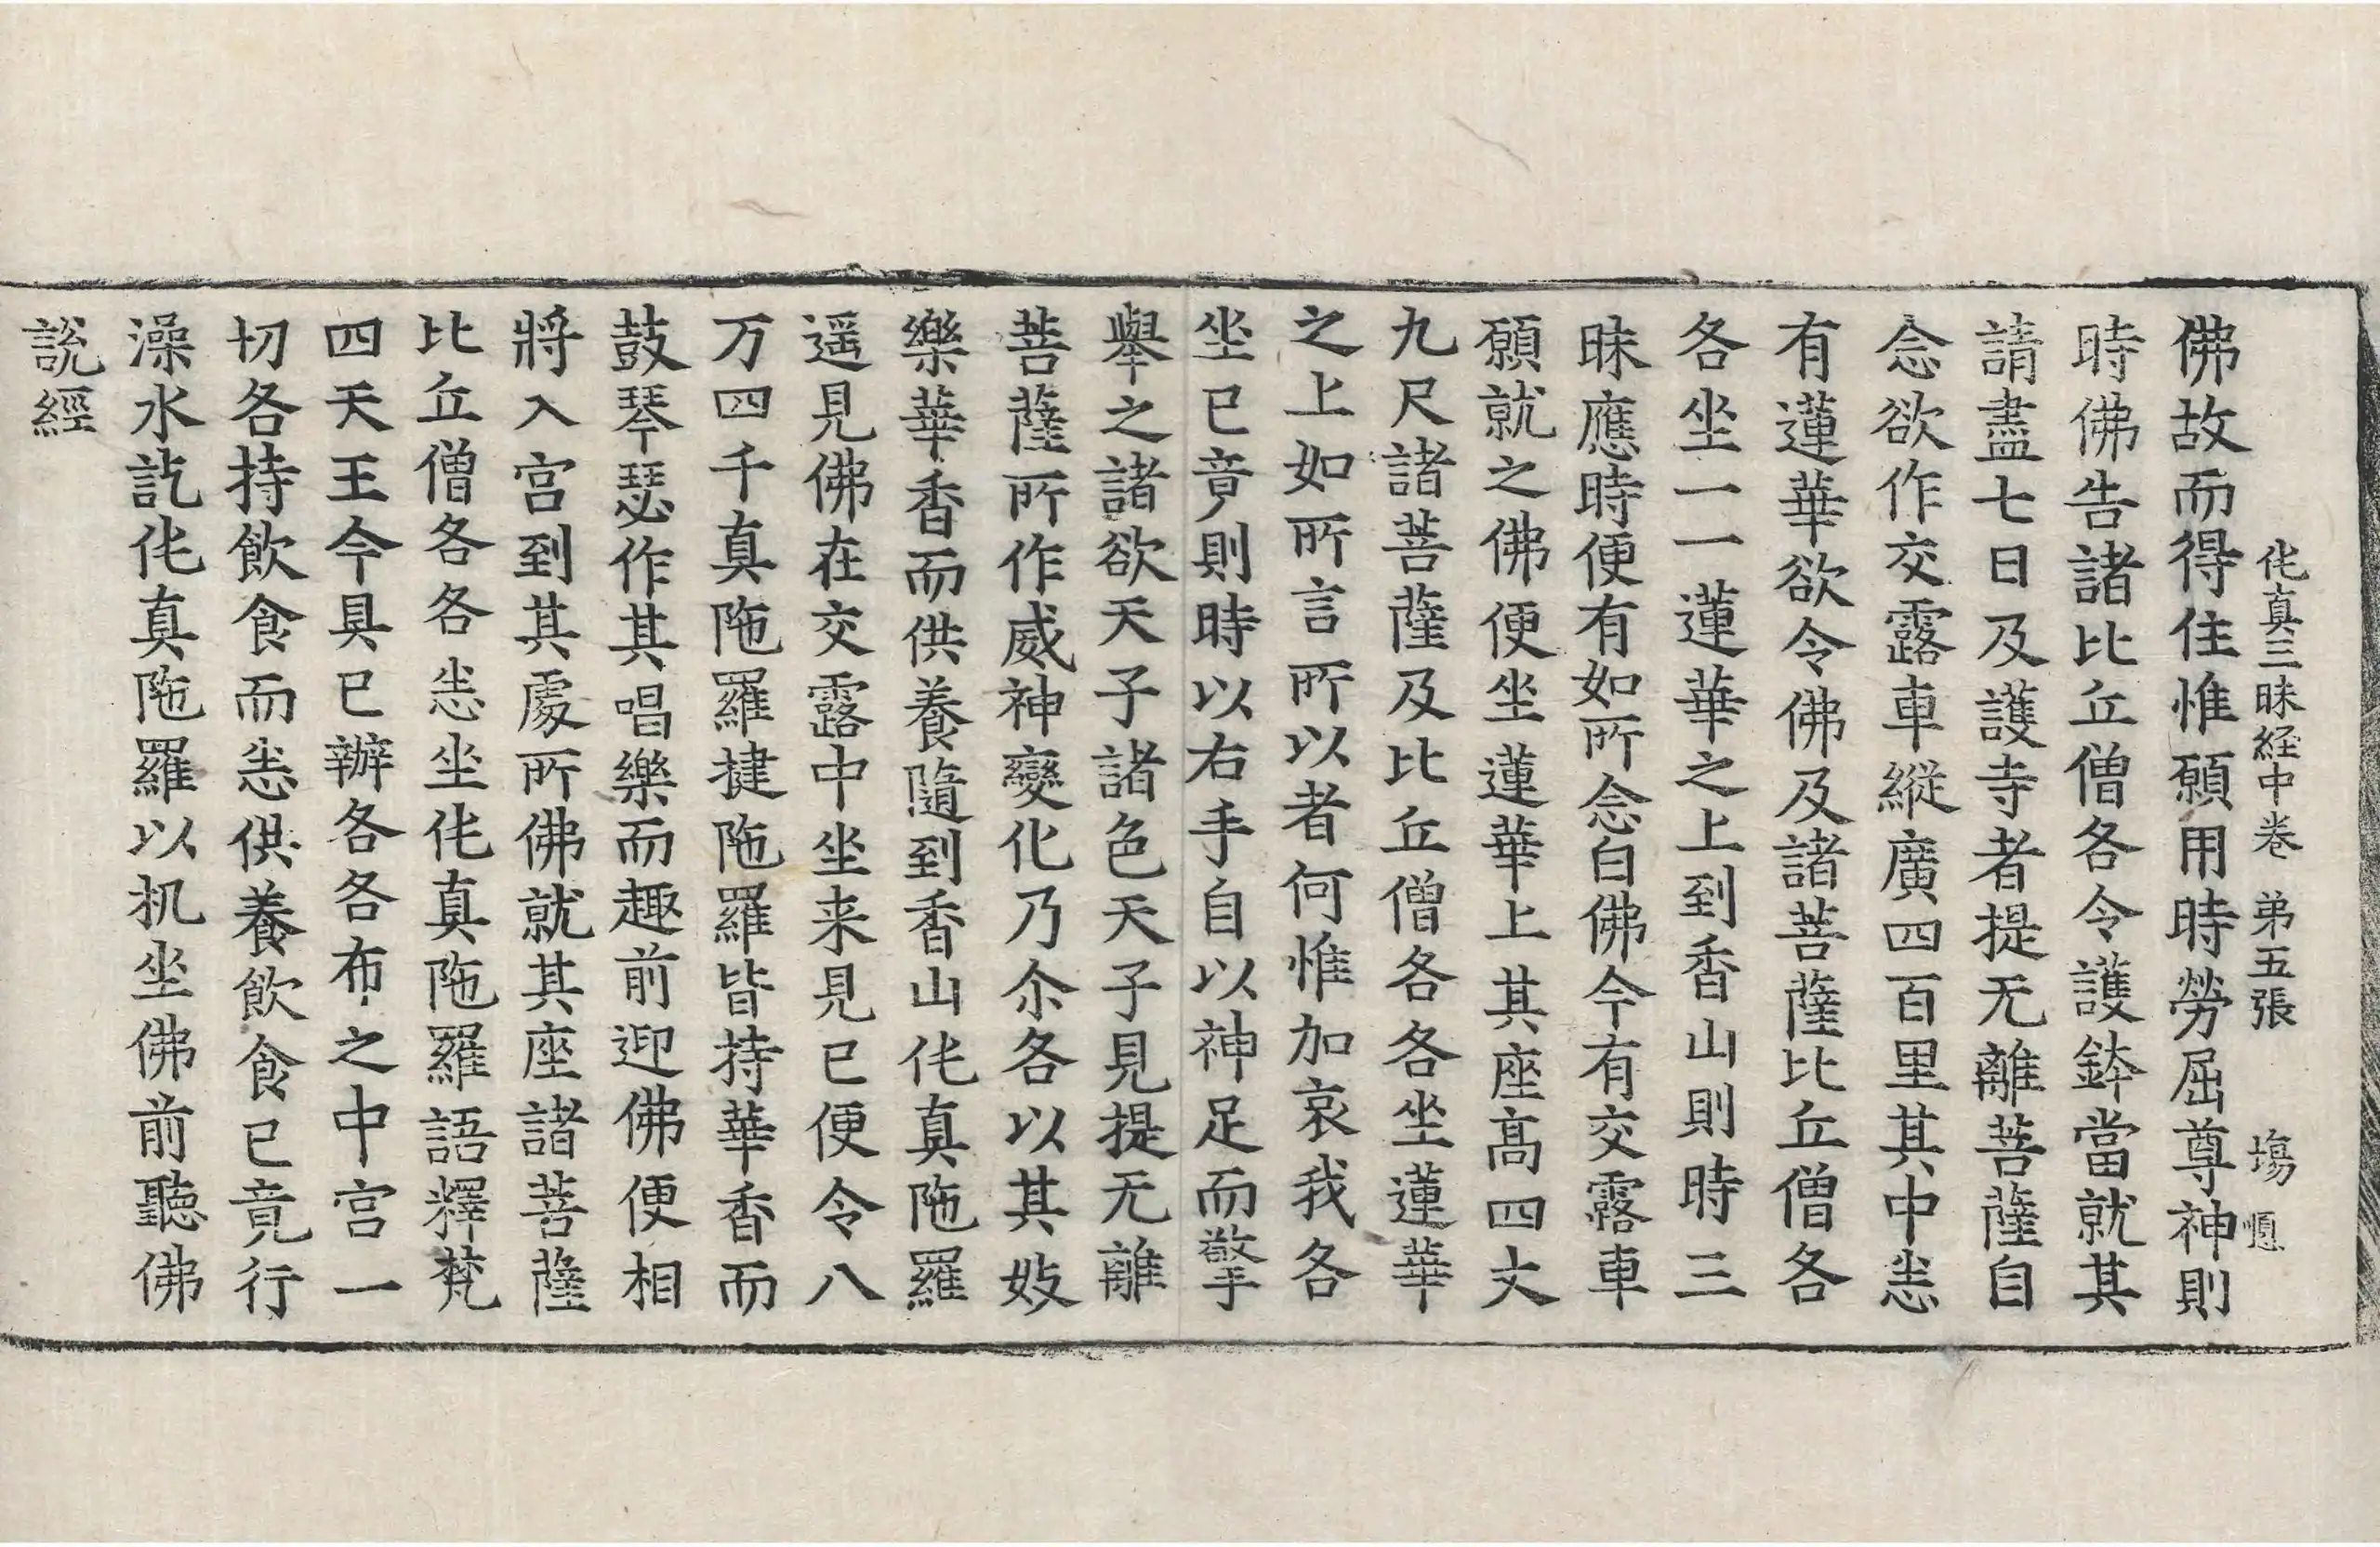 佛故而得住惟願用時勞屈尊神則
時佛告諸比丘僧各令護鉢當就其
請盡七日及護寺者提无離菩薩自
念欲作交露車縱廣四百里其中悉
有蓮華欲令佛及諸菩薩比丘僧各
各坐一一蓮華之上到香山則時三
昧應時便有如所念白佛今有交露車
願就之佛便坐蓮華上其座高四丈
九尺諸菩薩及比丘僧各各坐蓮華
之上如所言所以者何惟加哀我各
坐已竟則時以右手自以神足而擎
舉之諸欲天子諸色天子見提无離
菩薩所作威神變化乃尒各以其妓
樂華香而供養隨到香山伅真陁羅
遥見佛在交露中坐来見已便令八
万四千真陁羅揵陁羅皆持華香而
鼓琴瑟作其唱樂而趣前迎佛便相
將入宮到其處所佛就其座諸菩薩
比丘僧各各悉坐伅真陁羅語釋梵
四天王令具已辦各各布之中宮一
切各持飲食而悉供養飲食已竟行
澡水訖伅真陁羅以机坐佛前聽佛
說經
伅真三昧経中卷 弟五張 塲